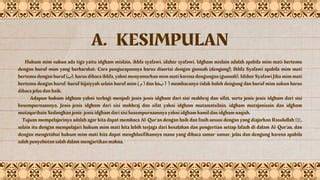 A. KESIMPULAN
Hukum mim sakun ada tiga yaitu idgham mislain, ikhfa syafawi, idzhar syafawi. Idgham mislain adalah apabila mim mati bertemu
dengan huruf mim yang berharakat. Cara pengucapannya harus disertai dengan gunnah (dengung). Ikhfa Syafawi apabila mim mati
bertemu dengan huruf (ب), harus dibaca ikhfa, yakni menyamarkan mim mati karena dengungan (gunnah). Idzhar Syafawi Jika mim mati
bertemu dengan huruf-huruf hijaiyyah selain huruf mim (م) dan ba (ب) membacanya tidak boleh dengung dan huruf mim sukun harus
dibaca jelas dan baik.
Adapun hukum idgham yakni terbagi menjadi jenis-jenis idgham dari sisi makhroj dan sifat, serta jenis-jenis idgham dari sisi
kesempurnaannya. Jenis-jenis idgham dari sisi makhroj dan sifat yakni idgham mutamatsilain, idgham mutajanisain dan idgham
mutaqaribain Sedangkan jenis-jenis idgham dari sisi kesempurnaannya yakni idgham kamil dan idgham naqish.
Tujuan mempelajarinya adalah agar kita dapat membaca Al-Qur'an dengan baik dan fasih sesuai dengan yang diajarkan Rasulullah ﷺ,
selain itu dengan mempelajari hukum mim mati kita lebih terjaga dari kesalahan dan pengertian setiap kalimah di dalam Al-Qur'an, dan
dengan mengetahui hukum mim mati kita dapat mengklasifikasinya mana yang dibaca samar-samar, jelas dan dengung karena apabila
salah penyebutan salah dalam mengartikan makna.